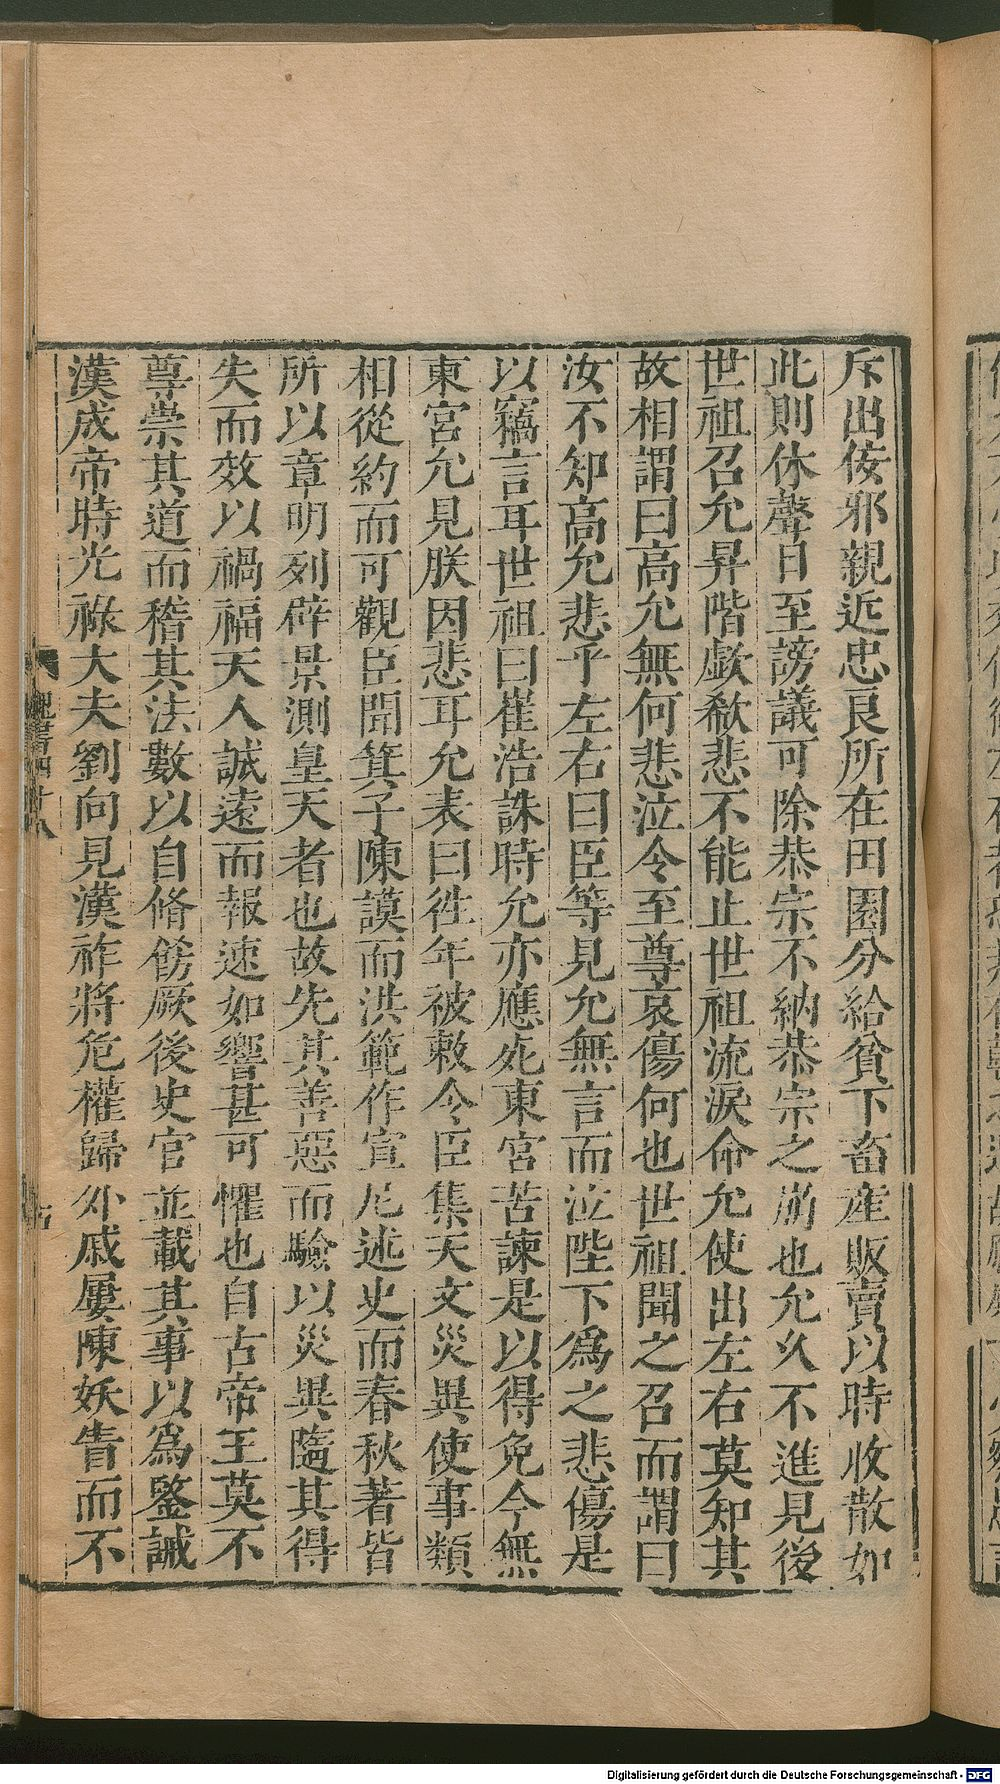 斥出佞邪親近忠良所在田園分給貧下畜產販賣以時收散如
此則休聲日至謗議可除恭宗不納恭宗之崩也允久不進見後
世祖召允昇階歔欷悲不能止世祖流淚命允使出左右莫知其
故相謂曰高允無何悲泣令至尊哀傷何也世祖聞之召而謂曰
汝不知高允悲乎左右曰臣等見允無言而泣陛下爲之悲傷是
以竊言耳世祖曰崔浩誅時允亦應死東宮苦諫是以得免今無
東宮允見朕因悲耳允表曰徃年被敕令臣集天文災異使事類
相從約而可觀臣聞箕子陳謨而洪範作宣尼述史而春秋著皆
所以章明列辟景測皇天者也故先其善惡而驗以災異隨其得
失而效以禍福天人誠遠而報速如響甚可懼也自古帝王莫不
尊崇其道而稽其法數以自脩飭厥後史官並載其事以爲鑒誡
漢成帝時光祿大夫劉向見漢祚將危權歸外戚屢陳妖眚而不
魏書四十八
Digitalisierung gefördert durch die Deutsche Forschungsgemeinschaft - DFG